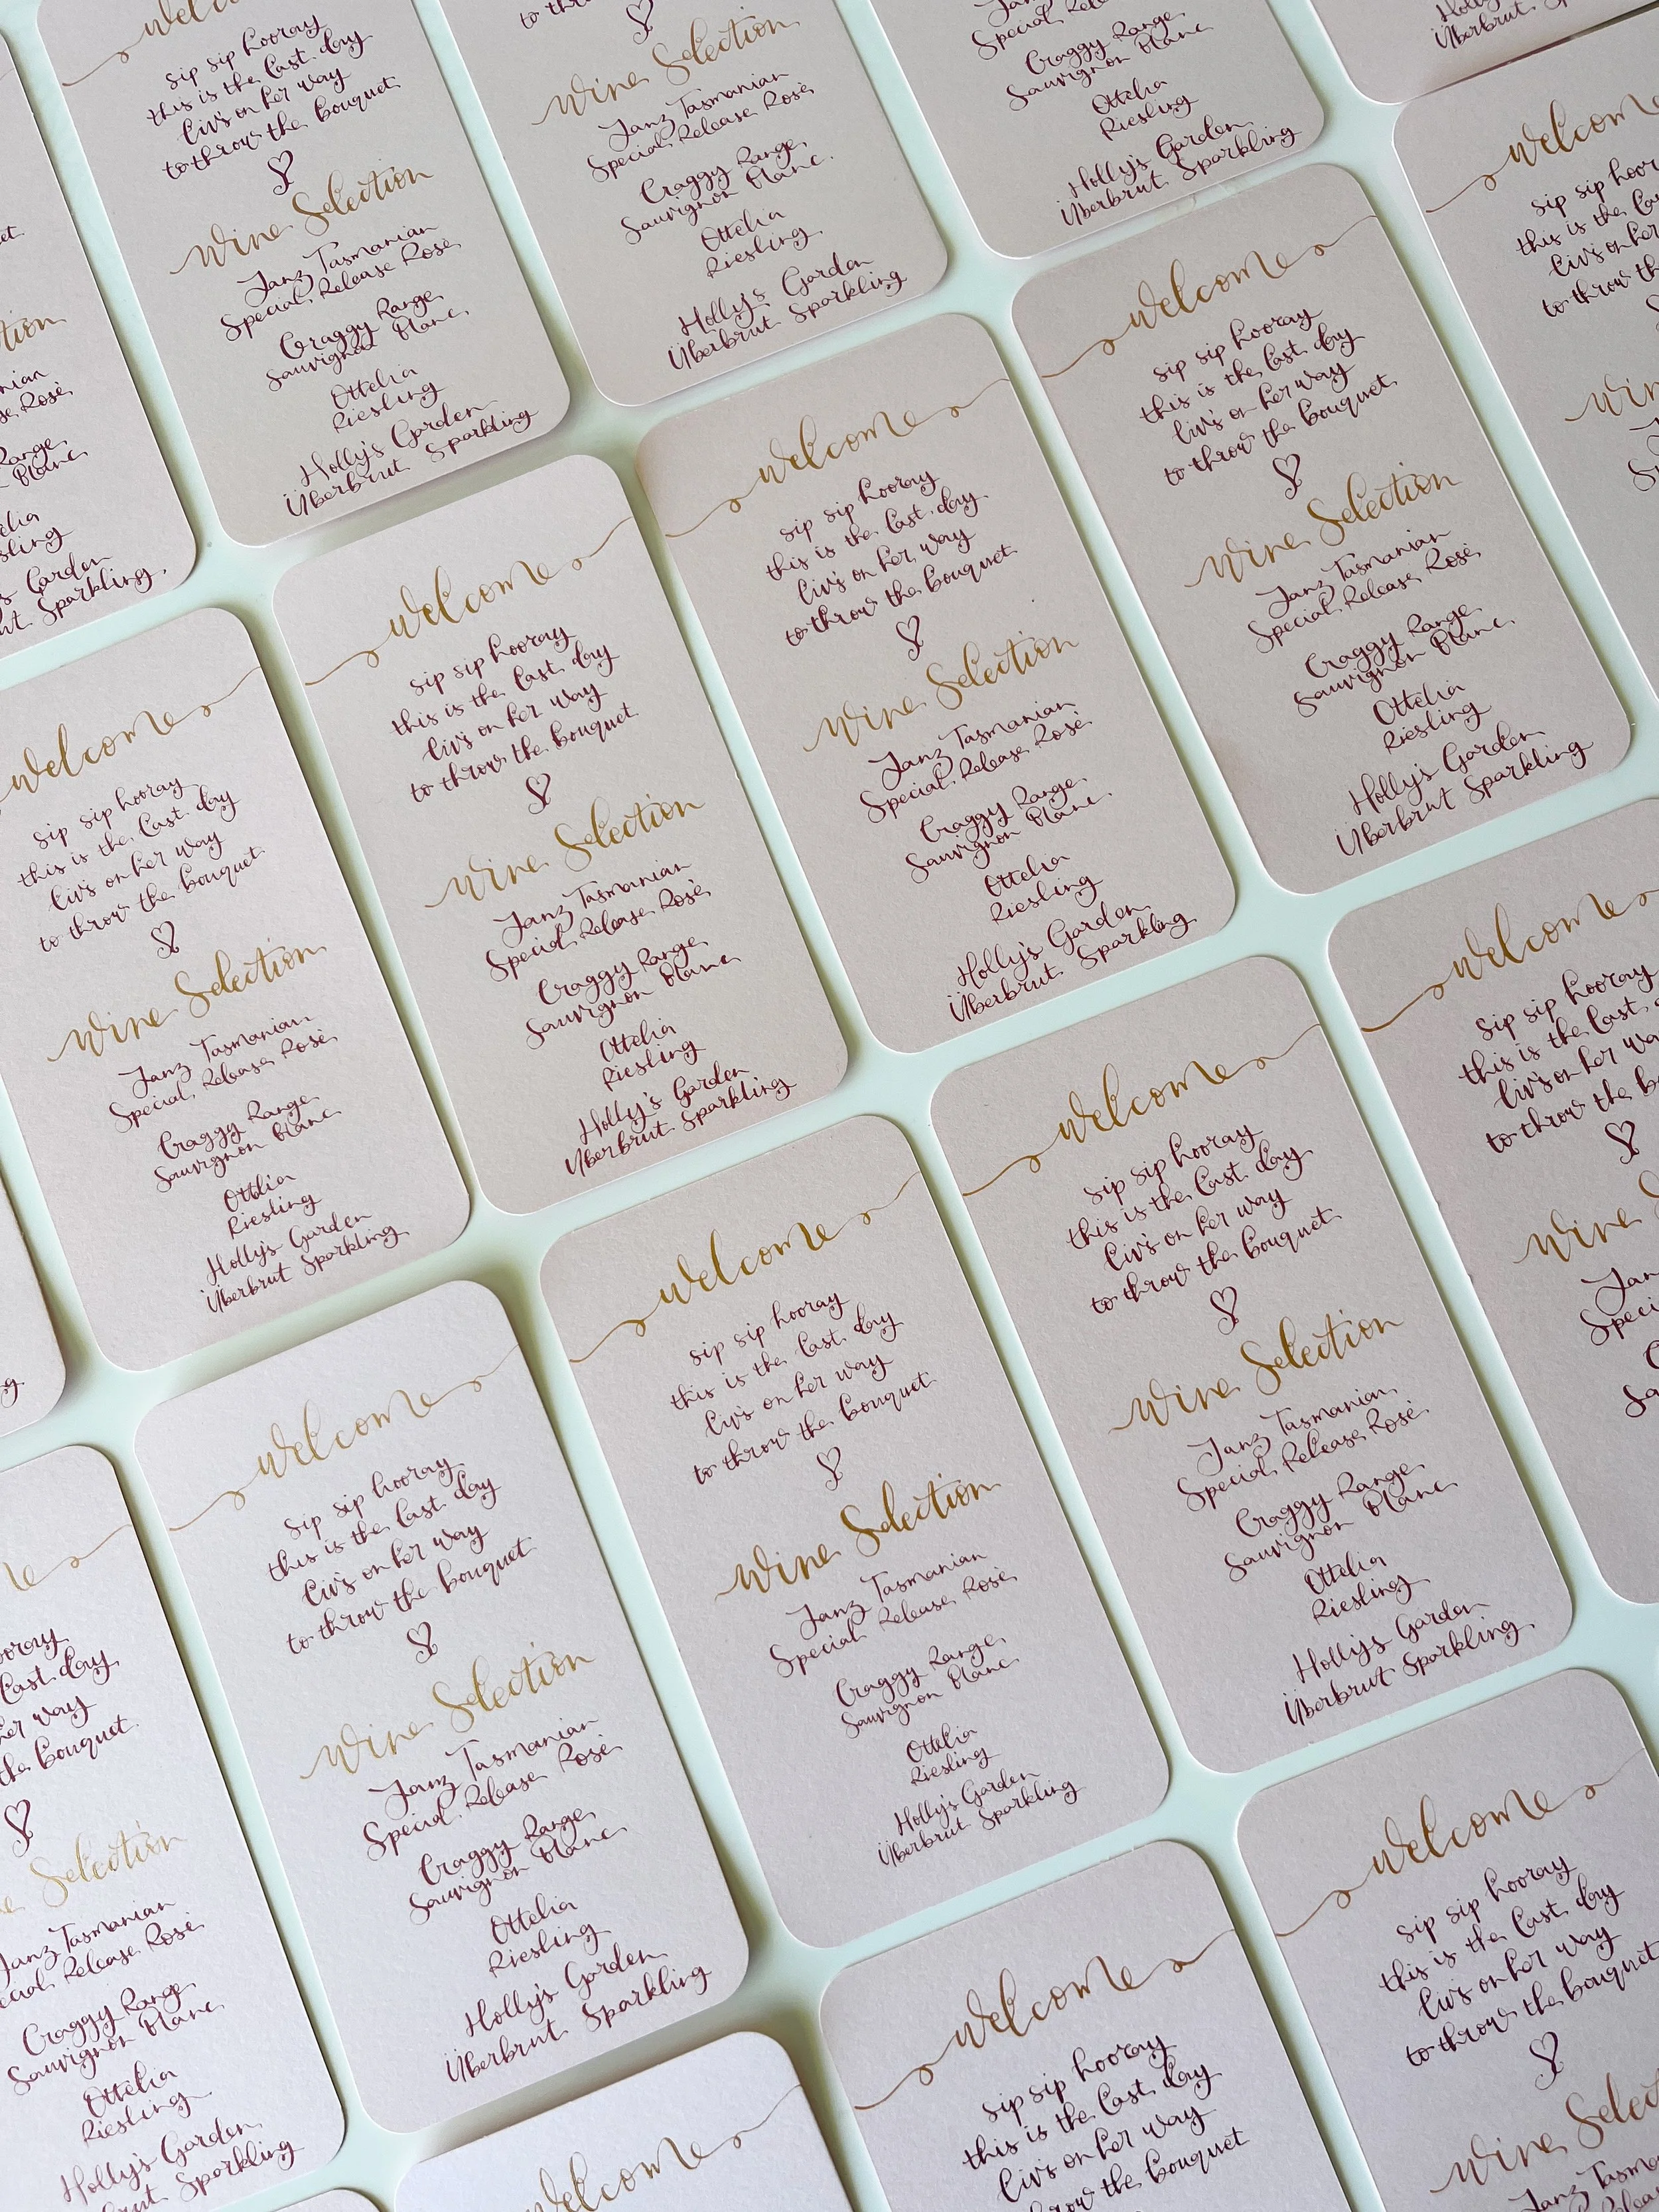 welcome
sip sip hooray
this is the last day
Liv's on her way
to throw the bouquet
Wine Selection
Janz Tasmanian
Special Release Rosé
Craggy Range
Sauvignon Blanc
Ottelia
Riesling
Holly's Garden
Überbrut Sparkling